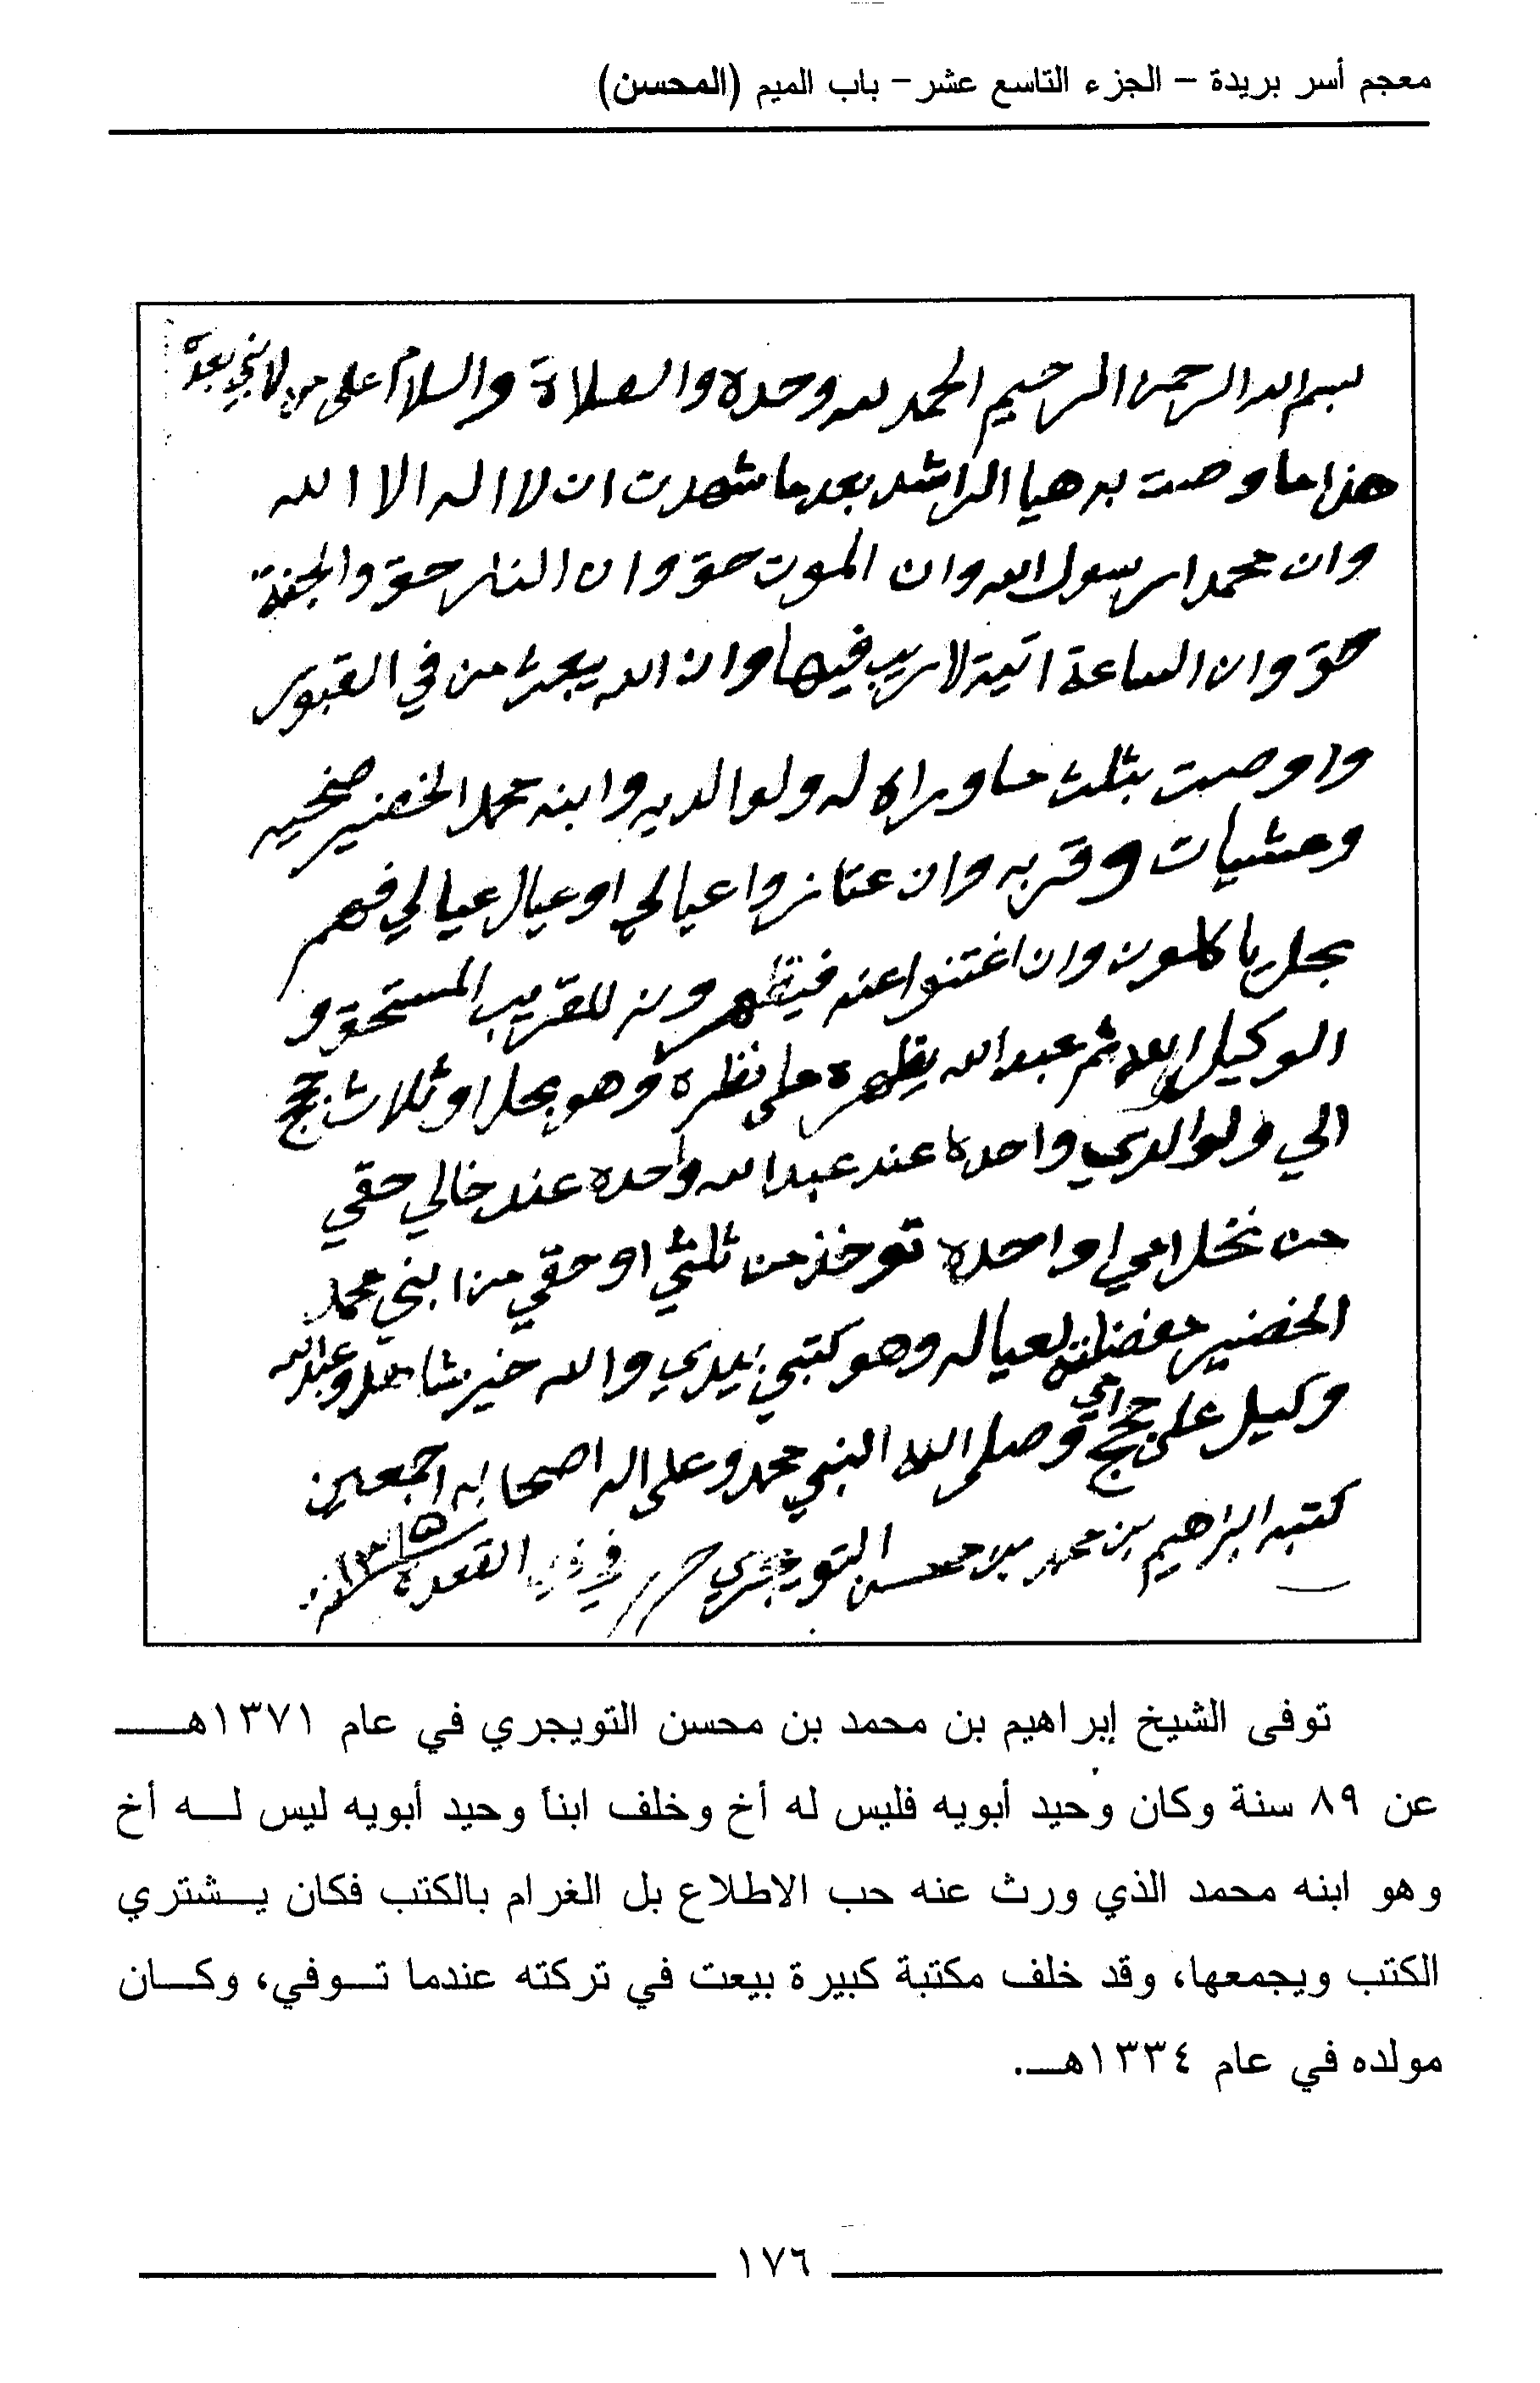 معجم أسر بريدة – الجزء التاسع عشر – باب الميم (المحسن)
بسم الله الرحمن الرحيم الحمد لله وحده والصلاة والسلام على من لا نبي بعده
هذا ما وصت به هيا الراشد بعد ما شهدت ان لا اله الا الله
وان محمدا رسول الله وان الموت حق وان النار حق والجنة
حق وان الساعة اتية لا ريب فيها وان الله يبعث من في القبور
واوصت بثلث ما وراه له ولوالديه وابنه محمد الخضير ضحيه
وعشيات وقربه وان عتازوا عيالي او عيال عيالي فهم
بحل ياكلون وان اغتنوا عنه فيظهرونه للقريب المستحق و
الوكيل ثم عبد الله يظهره على نظره وهو بحل او ثلاث حجج
الي ولوالدي واحده عند عبد الله واحده عند خالي حقي
من نخل امي او احده توخذ من ثلثي او حقي من ابني محمد
الخضير لعياله وهو كتبي بيدي والله خير شاهد وعبد الله
وكيل على حجج امي وصلى الله النبي محمد وعلى اله اصحابه اجمعين
كتبه ابراهيم بن محمد بن محسن التويجري في ذي القعدة سنة ١٣١٥
توفى الشيخ إبراهيم بن محمد بن محسن التويجري في عام ١٣٧١هـ
عن ٨٩ سنة وكان وحيد أبويه فليس له أخ وخلف ابناً وحيد أبويه ليس لـه أخ
وهو ابنه محمد الذي ورث عنه حب الاطلاع بل الغرام بالكتب فكان يـشتري
الكتب ويجمعها، وقد خلف مكتبة كبيرة بيعت في تركته عندما تـوفي، وكـان
مولده في عام ١٣٣٤هـ.
١٧٦